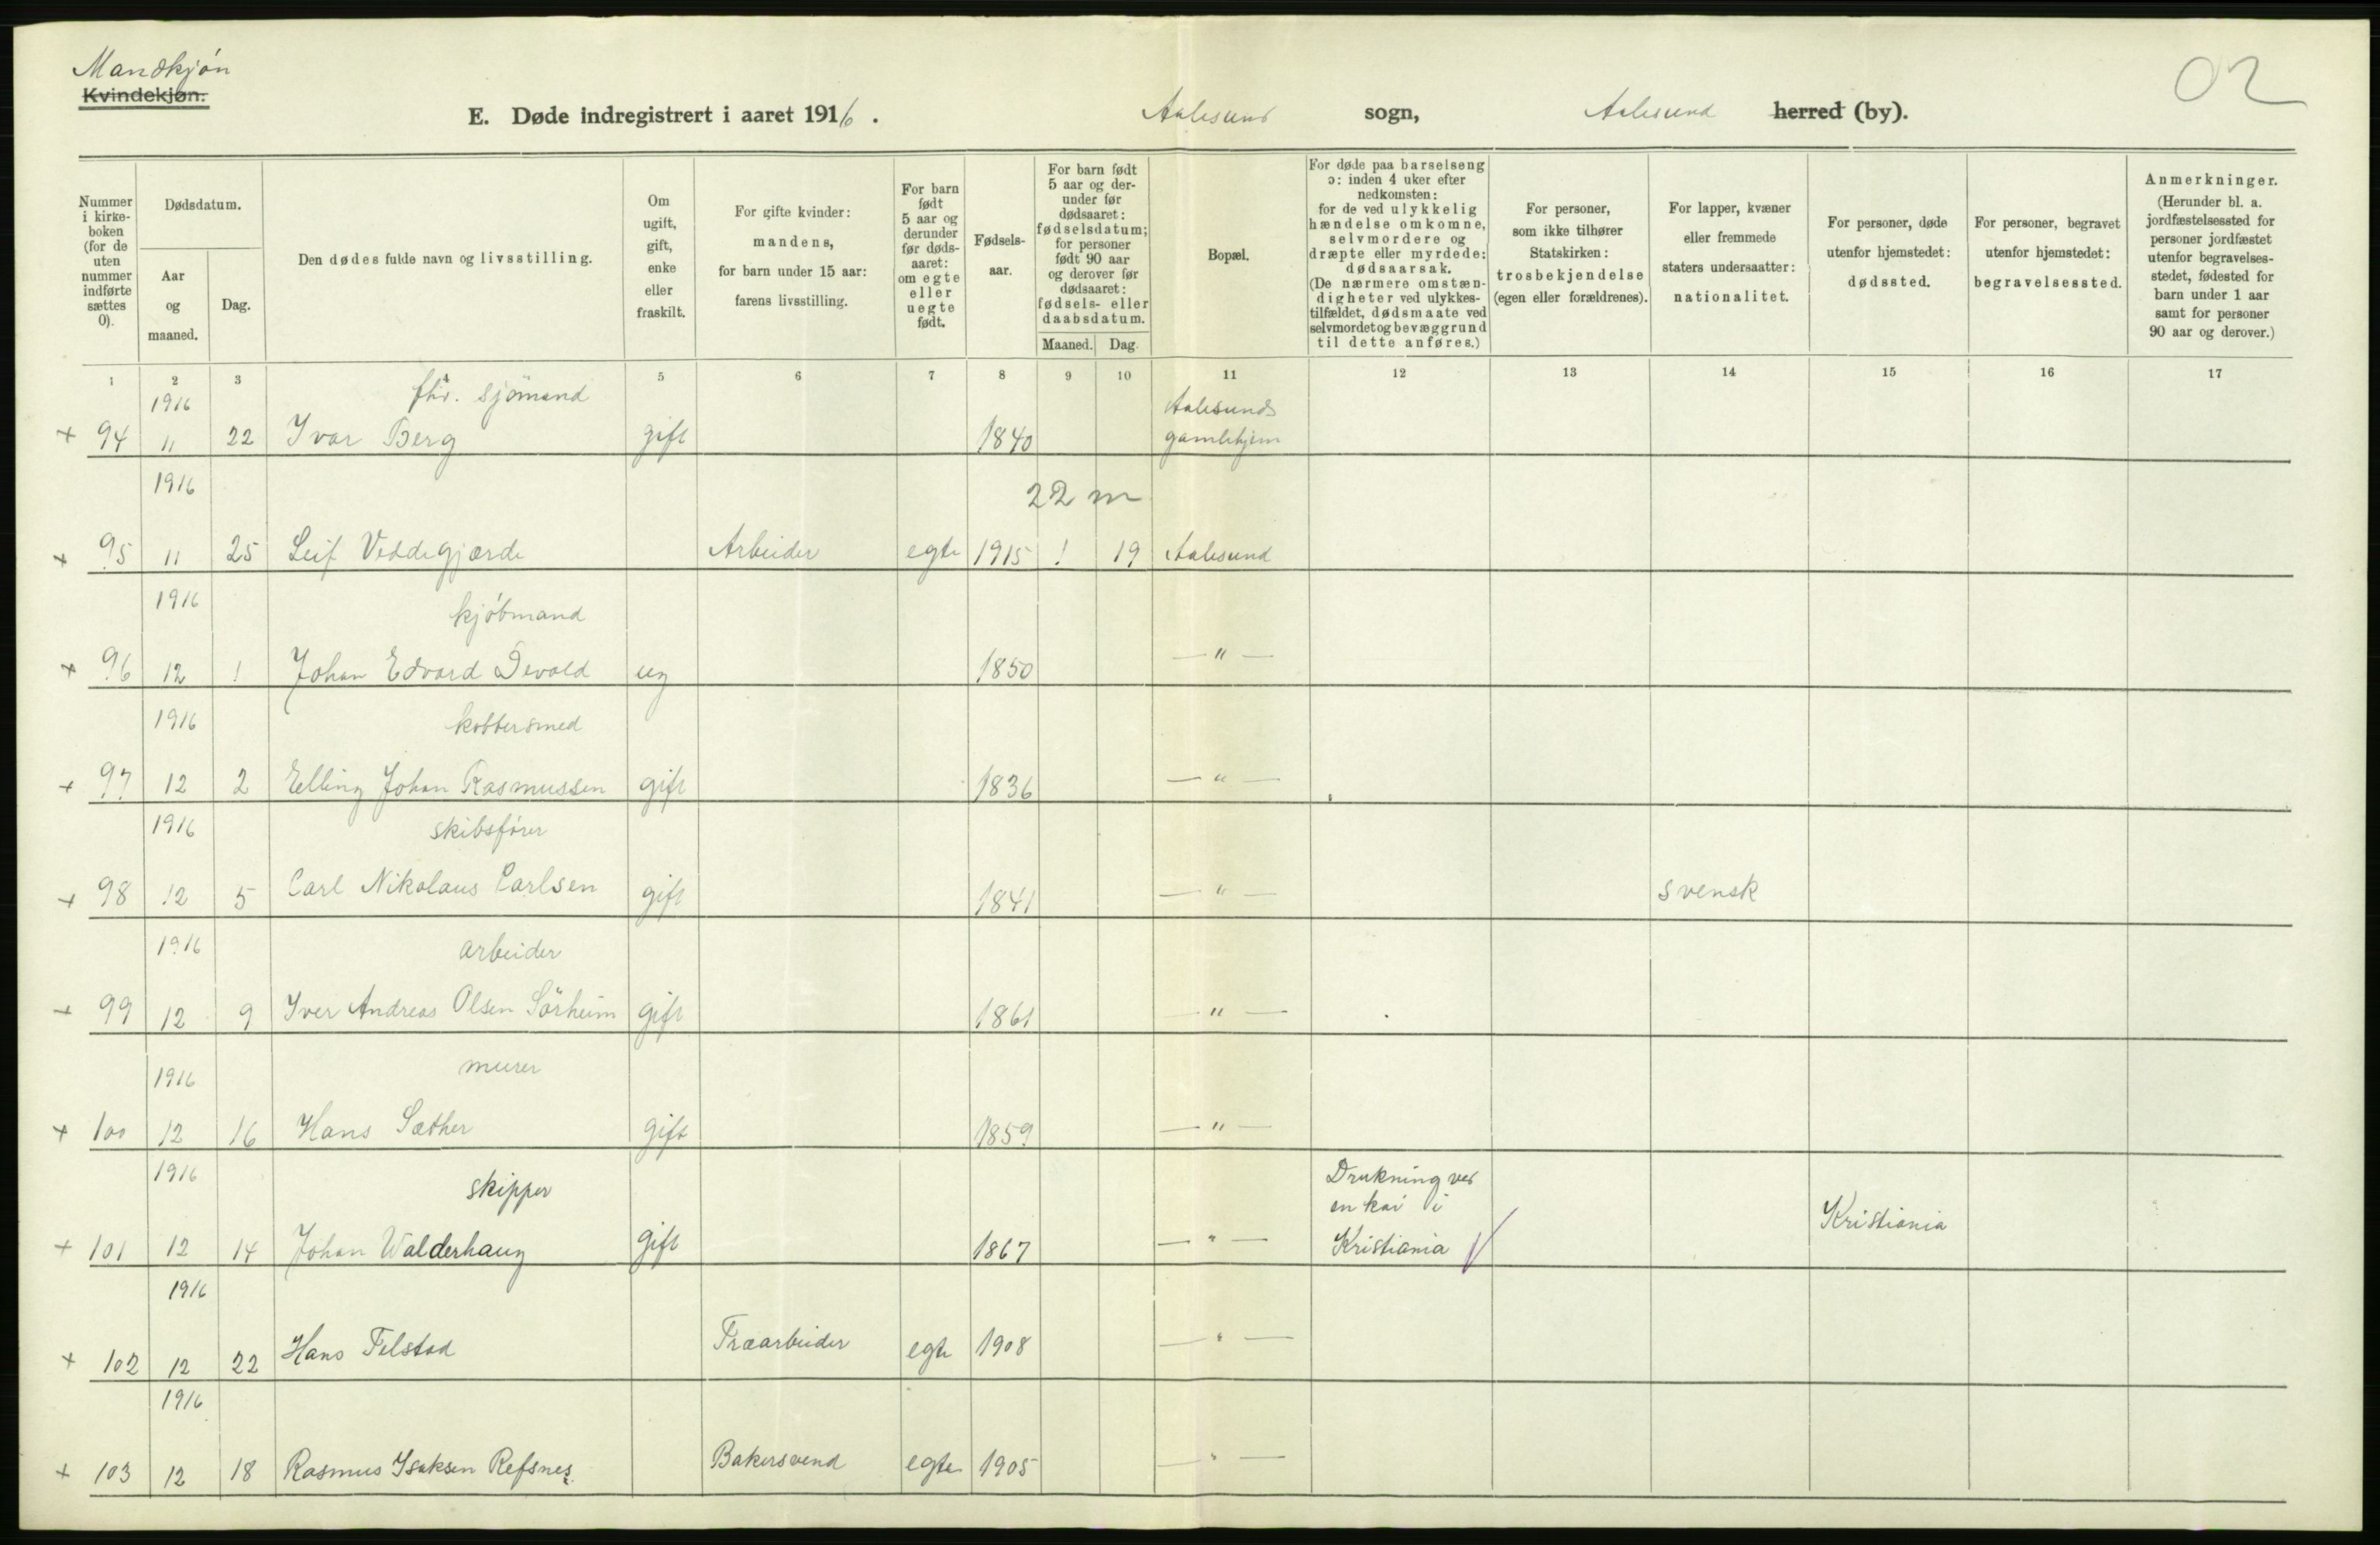 Mandkjön
Kvindekjøn.
02
E. Døde indregistrert i aaret 1916. Aalesund sogn, Aalesund herred (by).
Nummer i kirkeboken (for de uten nummer indførte sættes 0).
Dødsdatum.
Aar og maaned.
Dag.
Den dødes fulde navn og livsstilling.
Om ugift, gift, enke eller fraskilt.
For gifte kvinder: mandens, for barn under 15 aar: farens livsstilling.
For barn født 5 aar og derunder før dødsaaret: om egte eller uegte født.
Fødselsaar.
For barn født 5 aar og derunder før dødsaaret: fødselsdatum; for personer født 90 aar og derover før dødsaaret: fødsels- eller daabsdatum.
Maaned. Dag.
Bopæl.
For døde paa barselseng ɔ: inden 4 uker efter nedkomsten: for de ved ulykkelig hændelse omkomne, selvmordere og dræpte eller myrdede: dødsaarsak. (De nærmere omstændigheter ved ulykkestilfældet, dødsmaate ved selvmordet og bevæggrund til dette anføres.)
For personer, som ikke tilhører Statskirken: trosbekjendelse (egen eller forældrenes).
For lapper, kvæner eller fremmede staters undersaatter: nationalitet.
For personer, døde utenfor hjemstedet: dødssted.
For personer, begravet utenfor hjemstedet: begravelsessted.
Anmerkninger. (Herunder bl. a. jordfæstelsessted for personer jordfæstet utenfor begravelsesstedet, fødested for barn under 1 aar samt for personer 90 aar og derover.)
1 2 3 4 5 6 7 8 9 10 11 12 13 14 15 16 17
1916 fhv. sjömand Aalesunds
+ 94 11 22 Ivar Berg gift 1840 gamlehjem
1916 22 m
+ 95 11 25 Leif Veddegjærde Arbeider egte 1915 1 19 Aalesund
1916 kjöbmand
+ 96 12 1 Johan Edvard Devold ug 1850 — " —
1916 kobbersmed
+ 97 12 2 Elling Johan Rasmussen gift 1836 — " —
1916 skibsförer
+ 98 12 5 Carl Nikolaus Carlsen gift 1841 — " — svensk
1916 arbeider
+ 99 12 9 Iver Andreas Olsen Sörheim gift 1861 — " —
1916 murer
+ 100 12 16 Hans Sæther gift 1859 — " —
1916 skipper Drukning ved en kai i
+ 101 12 14 Johan Walderhaug gift 1867 — " — Kristiania Kristiania
1916
+ 102 12 22 Hans Felstad Træarbeider egte 1908 — " —
1916
+ 103 12 18 Rasmus Isaksen Refsnes. Bakersvend egte 1905 — " —